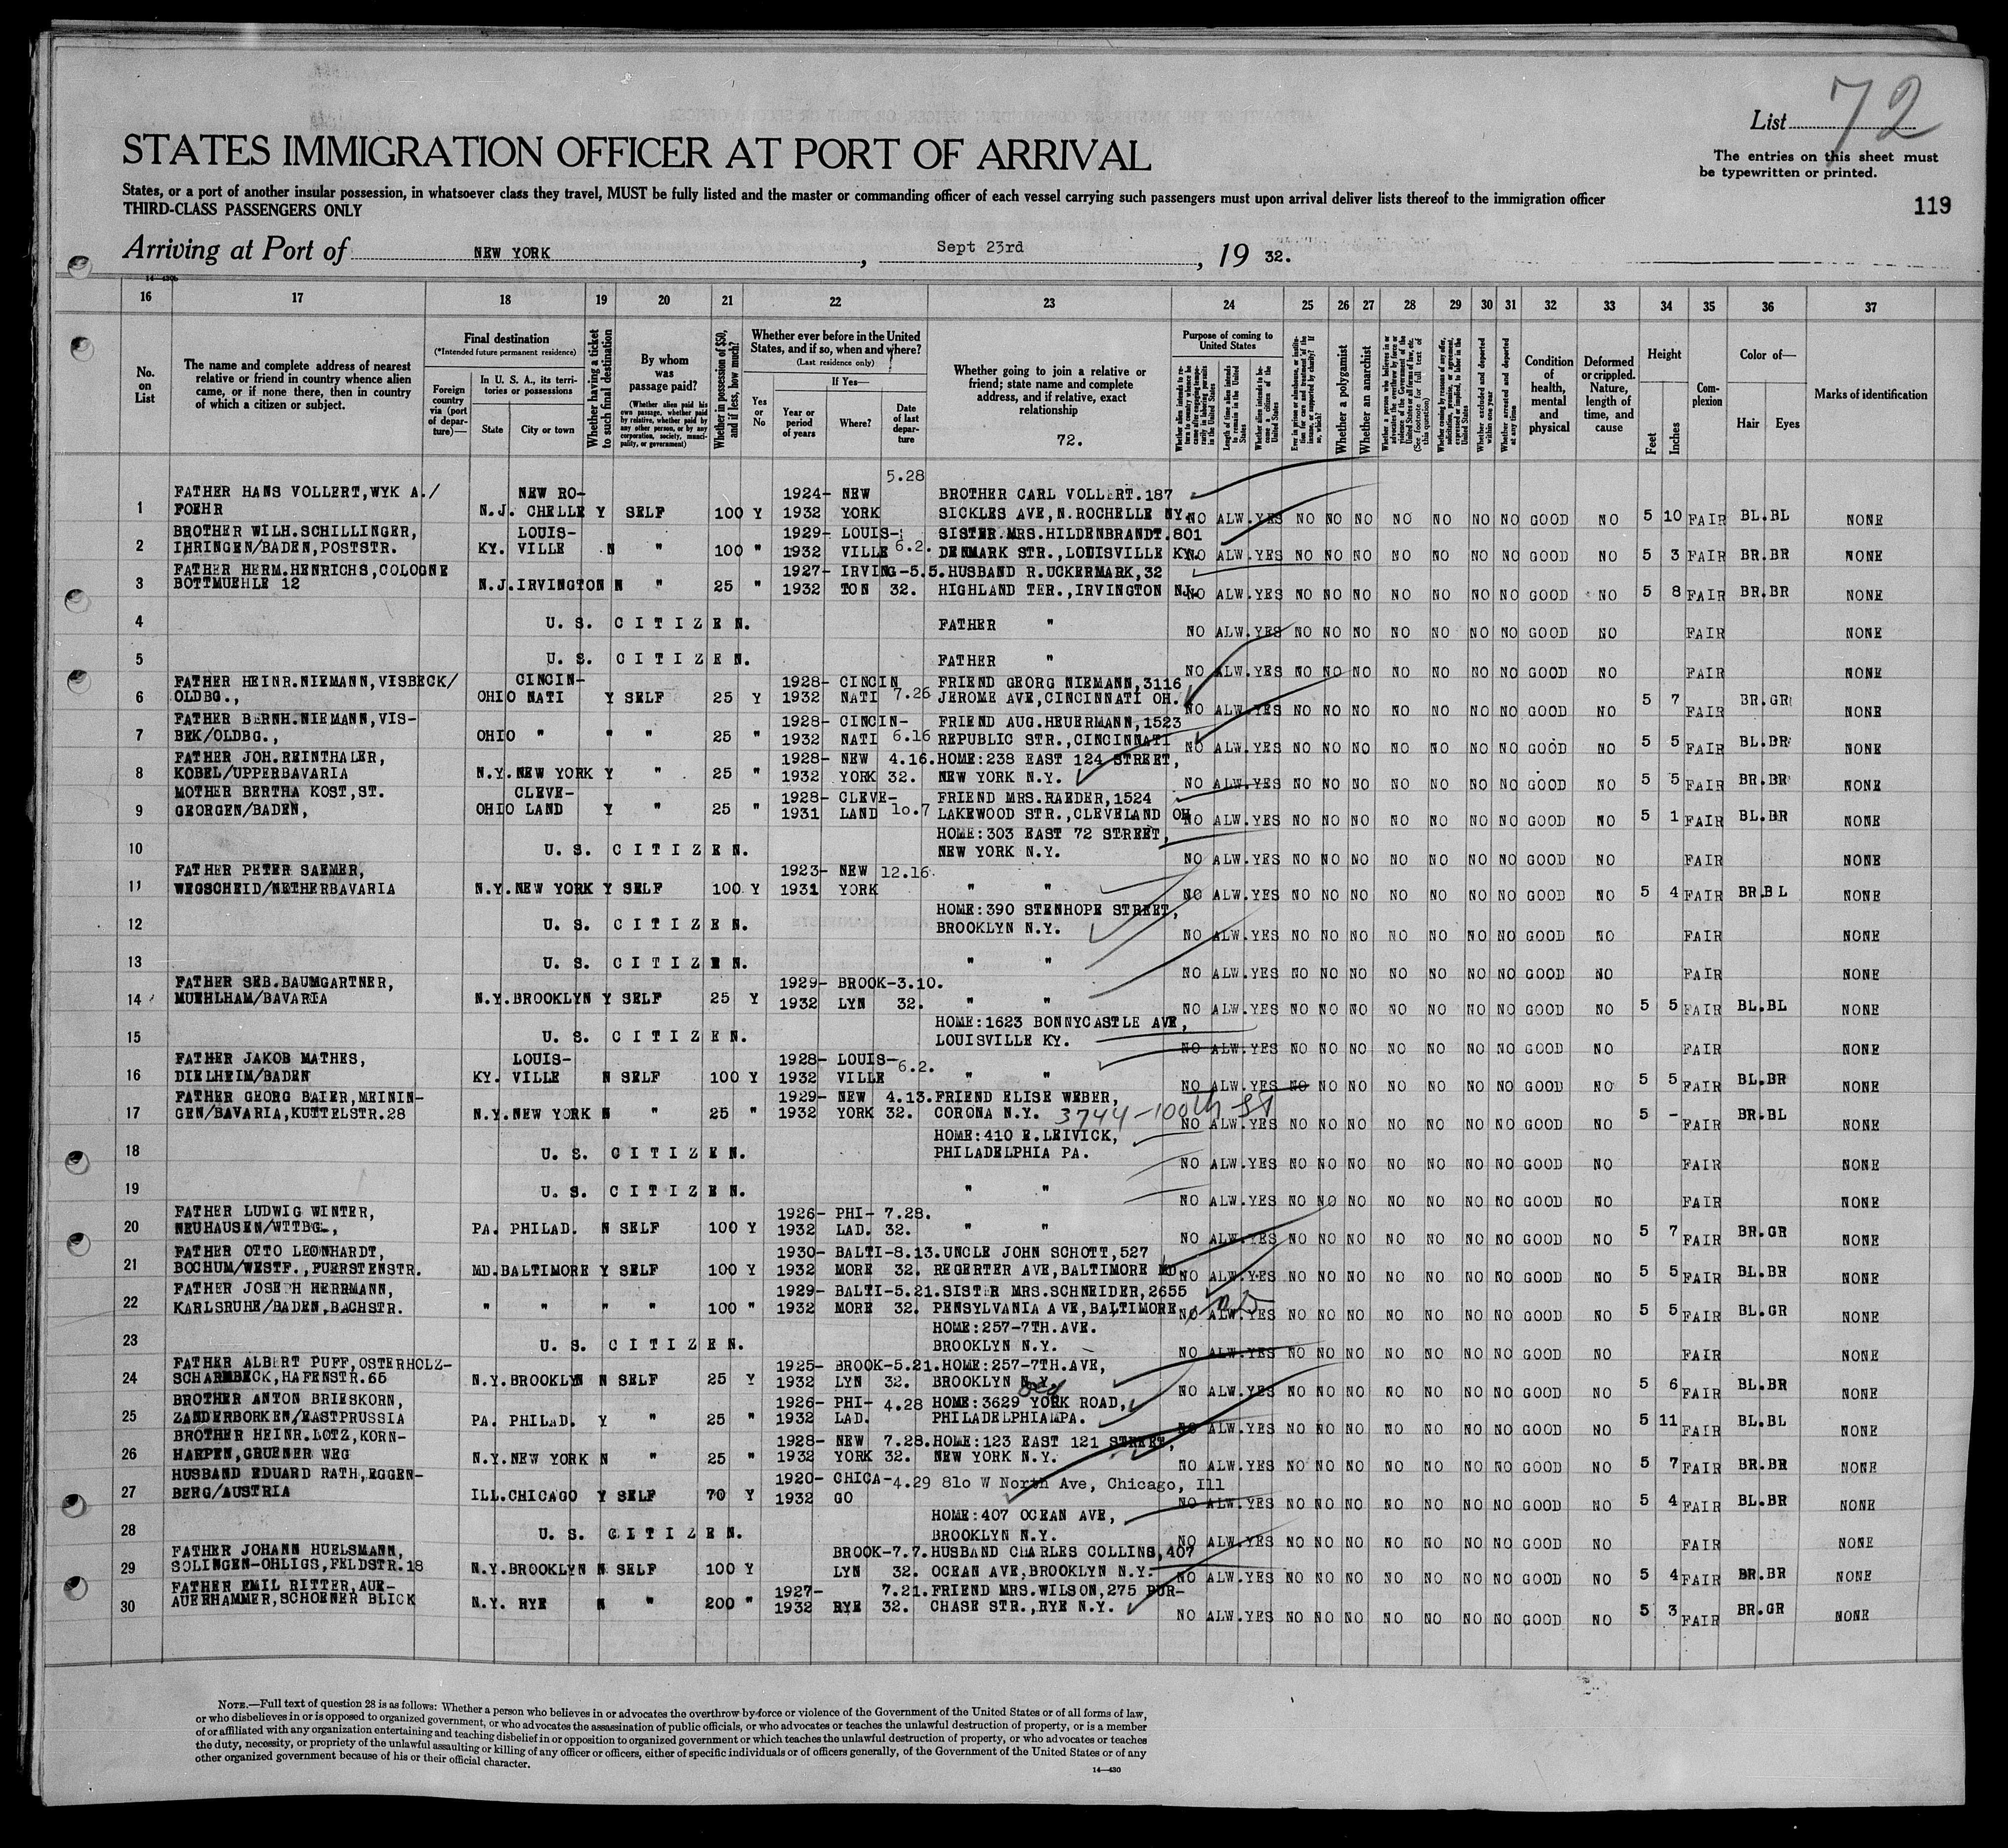 List 72
The entries on this sheet must
be typewritten or printed.
119
STATES IMMIGRATION OFFICER AT PORT OF ARRIVAL
States, or a port of another insular possession, in whatsoever class they travel, MUST be fully listed and the master or commanding officer of each vessel carrying such passengers must upon arrival deliver lists thereof to the immigration officer
THIRD-CLASS PASSENGERS ONLY
Arriving at Port of NEW YORK, Sept 23rd, 19 32.
14-430b
16 17 18 19 20 21 22 23 24 25 26 27 28 29 30 31 32 33 34 35 36 37
No. on List
The name and complete address of nearest relative or friend in country whence alien came, or if none there, then in country of which a citizen or subject.
Final destination
(*Intended future permanent residence)
Foreign country via (port of departure)—
In U. S. A., its territories or possessions
State City or town
Whether having a ticket to such final destination
By whom was passage paid?
(Whether alien paid his own passage, whether paid by relative, whether paid by any other person, or by any corporation, society, municipality, or government)
Whether in possession of $50, and if less, how much?
Whether ever before in the United States, and if so, when and where?
(Last residence only)
Yes or No
If Yes—
Year or period of years
Where?
Date of last departure
Whether going to join a relative or friend; state name and complete address, and if relative, exact relationship
72.
Purpose of coming to United States
Length of time alien intends to remain in the United States
Whether alien intends to become a citizen of the United States
Whether a polygamist
Whether an anarchist
Whether excluded and deported within one year
Whether arrested and deported at any time
Condition of health, mental and physical
Deformed or crippled. Nature, length of time, and cause
Height
Feet Inches
Complexion
Color of—
Hair Eyes
Marks of identification
1 FATHER HANS VOLLERT, WYK A./ NEW RO- 1924- NEW 5.28 BROTHER CARL VOLLERT.187
FOEHR N.J. CHELLE Y SELF 100 Y 1932 YORK SICKLES AVE,N.ROCHELLE NY. NO ALW.YES NO NO NO NO NO NO NO GOOD NO 5 10 FAIR BL.BL NONE
2 BROTHER WILH.SCHILLINGER, LOUIS- 1929- LOUIS- SISTER.MRS.HILDENBRANDT.801
IHRINGEN/BADEN,POSTSTR. KY. VILLE N " 100 " 1932 VILLE 6.2. DENMARK STR.,LOUISVILLE KY. NO ALW.YES NO NO NO NO NO NO NO GOOD NO 5 3 FAIR BR.BR NONE
3 FATHER HERM.HENRICHS,COLOGNE 1927- IRVING-5.5. HUSBAND R.UCKERMARK,32
BOTTMUEHLE 12 N.J.IRVINGTON N " 25 " 1932 TON 32. HIGHLAND TER.,IRVINGTON N.J. NO ALW.YES NO NO NO NO NO NO NO GOOD NO 5 8 FAIR BR.BR NONE
4 U. S. C I T I Z E N. FATHER " NO ALW.YES NO NO NO NO NO NO NO GOOD NO FAIR NONE
5 U. S. C I T I Z E N. FATHER " NO ALW.YES NO NO NO NO NO NO NO GOOD NO FAIR NONE
6 FATHER HEINR.NIEMANN,VISBECK/ CINCIN- 1928- CINCIN FRIEND GEORG NIEMANN,3116
OLDBG., OHIO NATI Y SELF 25 Y 1932 NATI 7.26 JEROME AVE,CINCINNATI OH. NO ALW.YES NO NO NO NO NO NO NO GOOD NO 5 7 FAIR BR.GR NONE
7 FATHER BERNH.NIEMANN,VIS- 1928- CINCIN- FRIEND AUG.HEUERMANN,1523
BEK/OLDBG., OHIO " " " 25 " 1932 NATI 6.16 REPUBLIC STR.,CINCINNATI NO ALW.YES NO NO NO NO NO NO NO GOOD NO 5 5 FAIR BL.BR NONE
8 FATHER JOH.REINTHALER, 1928- NEW 4.16. HOME:238 EAST 124 STREET,
KOBEL/UPPERBAVARIA N.Y.NEW YORK Y " 25 " 1932 YORK 32. NEW YORK N.Y. NO ALW.YES NO NO NO NO NO NO NO GOOD NO 5 5 FAIR BR.BR NONE
9 MOTHER BERTHA KOST,ST. CLEVE- 1928- CLEVE- FRIEND MRS.RAEDER,1524
GEORGEN/BADEN, OHIO LAND Y " 25 " 1931 LAND 10.7 LAKEWOOD STR.,CLEVELAND OH NO ALW.YES NO NO NO NO NO NO NO GOOD NO 5 1 FAIR BL.BR NONE
10 HOME:303 EAST 72 STREET,
U. S. C I T I Z E N. NEW YORK N.Y. NO ALW.YES NO NO NO NO NO NO NO GOOD NO FAIR NONE
11 FATHER PETER SAEMER, 1923- NEW 12.16.
WEGSCHEID/NETHERBAVARIA N.Y.NEW YORK Y SELF 100 Y 1931 YORK " " NO ALW.YES NO NO NO NO NO NO NO GOOD NO 5 4 FAIR BR.BL NONE
12 HOME:390 STENHOPE STREET,
U. S. C I T I Z E N. BROOKLYN N.Y. NO ALW.YES NO NO NO NO NO NO NO GOOD NO FAIR NONE
13 U. S. C I T I Z E N. " " NO ALW.YES NO NO NO NO NO NO NO GOOD NO FAIR NONE
14 FATHER SEB.BAUMGARTNER, 1929- BROOK-3.10.
MUEHLHAM/BAVARIA N.Y.BROOKLYN Y SELF 25 Y 1932 LYN 32. " " NO ALW.YES NO NO NO NO NO NO NO GOOD NO 5 5 FAIR BL.BL NONE
15 HOME:1623 BONNYCASTLE AVE,
U. S. C I T I Z E N. LOUISVILLE KY. NO ALW.YES NO NO NO NO NO NO NO GOOD NO FAIR NONE
16 FATHER JAKOB MATHES, LOUIS- 1928- LOUIS- 6.2.
DIELHEIM/BADEN KY. VILLE N SELF 100 Y 1932 VILLE " " NO ALW.YES NO NO NO NO NO NO NO GOOD NO 5 5 FAIR BL.BR NONE
17 FATHER GEORG BAIER,MEININ- 1929- NEW 4.13. FRIEND ELISE WEBER,
GEN/BAVARIA,KUTTELSTR.28 N.Y.NEW YORK N " 25 " 1932 YORK 32. CORONA N.Y. 3744-100th St NO ALW.YES NO NO NO NO NO NO NO GOOD NO 5 - FAIR BR.BL NONE
18 HOME:410 E.LEIVICK,
U. S. C I T I Z E N. PHILADELPHIA PA. NO ALW.YES NO NO NO NO NO NO NO GOOD NO FAIR NONE
19 U. S. C I T I Z E N. " " NO ALW.YES NO NO NO NO NO NO NO GOOD NO FAIR NONE
20 FATHER LUDWIG WINTER, 1926- PHI- 7.28.
NEUHAUSEN/WTTBG., PA. PHILAD. N SELF 100 Y 1932 LAD. 32. " " NO ALW.YES NO NO NO NO NO NO NO GOOD NO 5 7 FAIR BR.GR NONE
21 FATHER OTTO LEONHARDT, 1930- BALTI-8.13. UNCLE JOHN SCHOTT,527
BOCHUM/WESTF.,FUERSTENSTR. MD.BALTIMORE Y SELF 100 Y 1932 MORE 32. REGERTER AVE,BALTIMORE MD NO ALW.YES NO NO NO NO NO NO NO GOOD NO 5 5 FAIR BL.BR NONE
22 FATHER JOSEPH HERRMANN, 1929- BALTI-5.21. SISTER MRS.SCHNEIDER,2655
KARLSRUHE/BADEN,BACHSTR. " " " " 100 " 1932 MORE 32. PENSYLVANIA AVE,BALTIMORE NO ALW.YES NO NO NO NO NO NO NO GOOD NO 5 5 FAIR BL.GR NONE
23 HOME:257-7TH.AVE.
U. S. C I T I Z E N. BROOKLYN N.Y. NO ALW.YES NO NO NO NO NO NO NO GOOD NO FAIR NONE
24 FATHER ALBERT PUFF,OSTERHOLZ- 1925- BROOK-5.21. HOME:257-7TH.AVE,
SCHARMBECK,HAFENSTR.65 N.Y.BROOKLYN N SELF 25 Y 1932 LYN 32. BROOKLYN N.Y. NO ALW.YES NO NO NO NO NO NO NO GOOD NO 5 6 FAIR BL.BR NONE
25 BROTHER ANTON BRIESKORN, 1926- PHI- 4.28 HOME:3629 YORK ROAD, Old
ZANDERBORKEN/EASTPRUSSIA PA. PHILAD. Y " 25 " 1932 LAD. PHILADELPHIA PA. NO ALW.YES NO NO NO NO NO NO NO GOOD NO 5 11 FAIR BL.BL NONE
26 BROTHER HEINR.LOTZ,KORN- 1928- NEW 7.28. HOME:123 EAST 121 STREET,
HARPEN,GRUENER WEG N.Y.NEW YORK N " 25 " 1932 YORK 32. NEW YORK N.Y. NO ALW.YES NO NO NO NO NO NO NO GOOD NO 5 7 FAIR BR.BR NONE
27 HUSBAND EDUARD RATH,EGGEN- 1920- CHICA-4.29 810 W North Ave, Chicago, Ill
BERG/AUSTRIA ILL.CHICAGO Y SELF 70 Y 1932 GO NO ALW.YES NO NO NO NO NO NO NO GOOD NO 5 4 FAIR BL.BR NONE
28 HOME:407 OCEAN AVE,
U. S. C I T I Z E N. BROOKLYN N.Y. NO ALW.YES NO NO NO NO NO NO NO GOOD NO FAIR NONE
29 FATHER JOHANN HUELSMANN, BROOK-7.7. HUSBAND CHARLES COLLINS,407
SOLINGEN-OHLIGS,FELDSTR.18 N.Y.BROOKLYN N SELF 100 Y LYN 32. OCEAN AVE,BROOKLYN N.Y. NO ALW.YES NO NO NO NO NO NO NO GOOD NO 5 4 FAIR BR.BR NONE
30 FATHER EMIL RITTER,AUE- 1927- 7.21. FRIEND MRS.WILSON,275 PUR-
AUERHAMMER,SCHOENER BLICK N.Y. RYE N " 200 " 1932 RYE 32. CHASE STR.,RYE N.Y. NO ALW.YES NO NO NO NO NO NO NO GOOD NO 5 3 FAIR BR.GR NONE
NOTE.—Full text of question 28 is as follows: Whether a person who believes in or advocates the overthrow by force or violence of the Government of the United States or of all forms of law,
or who disbelieves in or is opposed to organized government, or who advocates the assassination of public officials, or who advocates or teaches the unlawful destruction of property, or is a member
of or affiliated with any organization entertaining and teaching disbelief in or opposition to organized government or which teaches the unlawful destruction of property, or who advocates or teaches
the duty, necessity, or propriety of the unlawful assaulting or killing of any officer or officers, either of specific individuals or of officers generally, of the Government of the United States or of any
other organized government because of his or their official character.
14—430